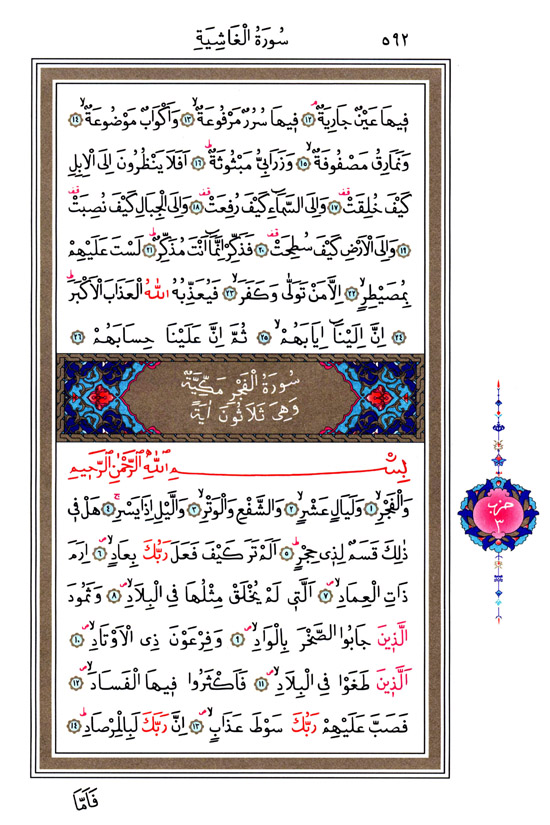 سُورَةُ الْغَاشِيَةِ ٥٩٢
فِيهَا عَيْنٌ جَارِيَةٌۢ ﴿١٢﴾ فِيهَا سُرُرٌ مَرْفُوعَةٌۙ ﴿١٣﴾ وَاَكْوَابٌ مَوْضُوعَةٌۙ ﴿١٤﴾
وَنَمَارِقُ مَصْفُوفَةٌۙ ﴿١٥﴾ وَزَرَابِيُّ مَبْثُوثَةٌۜ ﴿١٦﴾ اَفَلَا يَنْظُرُونَ اِلَى الْاِبِلِ
كَيْفَ خُلِقَتْ۠ ﴿١٧﴾ وَاِلَى السَّمَٓاءِ كَيْفَ رُفِعَتْ۠ ﴿١٨﴾ وَاِلَى الْجِبَالِ كَيْفَ نُصِبَتْ۠
﴿١٩﴾ وَاِلَى الْاَرْضِ كَيْفَ سُطِحَتْ۠ ﴿٢٠﴾ فَذَكِّرْ اِنَّمَٓا اَنْتَ مُذَكِّرٌۜ ﴿٢١﴾ لَسْتَ عَلَيْهِمْ
بِمُصَيْطِرٍۙ ﴿٢٢﴾ اِلَّا مَنْ تَوَلّٰى وَكَفَرَۙ ﴿٢٣﴾ فَيُعَذِّبُهُ اللّٰهُ الْعَذَابَ الْاَكْبَرَۜ
﴿٢٤﴾ اِنَّ اِلَيْنَٓا اِيَابَهُمْۙ ﴿٢٥﴾ ثُمَّ اِنَّ عَلَيْنَا حِسَابَهُمْ ﴿٢٦﴾
سُورَةُ الْفَجْرِ مَكِّيَّةٌ
وَهِيَ ثَلَاثُونَ اٰيَةً
بِسْمِ اللّٰهِ الرَّحْمٰنِ الرَّحِيمِ
وَالْفَجْرِۙ ﴿١﴾ وَلَيَالٍ عَشْرٍۙ ﴿٢﴾ وَالشَّفْعِ وَالْوَتْرِۙ ﴿٣﴾ وَالَّيْلِ اِذَا يَسْرِۚ ﴿٤﴾ هَلْ فِي
ذٰلِكَ قَسَمٌ لِذِي حِجْرٍۜ ﴿٥﴾ اَلَمْ تَرَ كَيْفَ فَعَلَ رَبُّكَ بِعَادٍۙ ﴿٦﴾ اِرَمَ
ذَاتِ الْعِمَادِۙ ﴿٧﴾ اَلَّتِي لَمْ يُخْلَقْ مِثْلُهَا فِي الْبِلَادِۙ ﴿٨﴾ وَثَمُودَ
الَّذِينَ جَابُوا الصَّخْرَ بِالْوَادِۙ ﴿٩﴾ وَفِرْعَوْنَ ذِي الْاَوْتَادِۙ ﴿١٠﴾
اَلَّذِينَ طَغَوْا فِي الْبِلَادِۙ ﴿١١﴾ فَاَكْثَرُوا فِيهَا الْفَسَادَۙ ﴿١٢﴾
فَصَبَّ عَلَيْهِمْ رَبُّكَ سَوْطَ عَذَابٍۙ ﴿١٣﴾ اِنَّ رَبَّكَ لَبِالْمِرْصَادِۜ ﴿١٤﴾
حزب
٣
فَاَمَّا